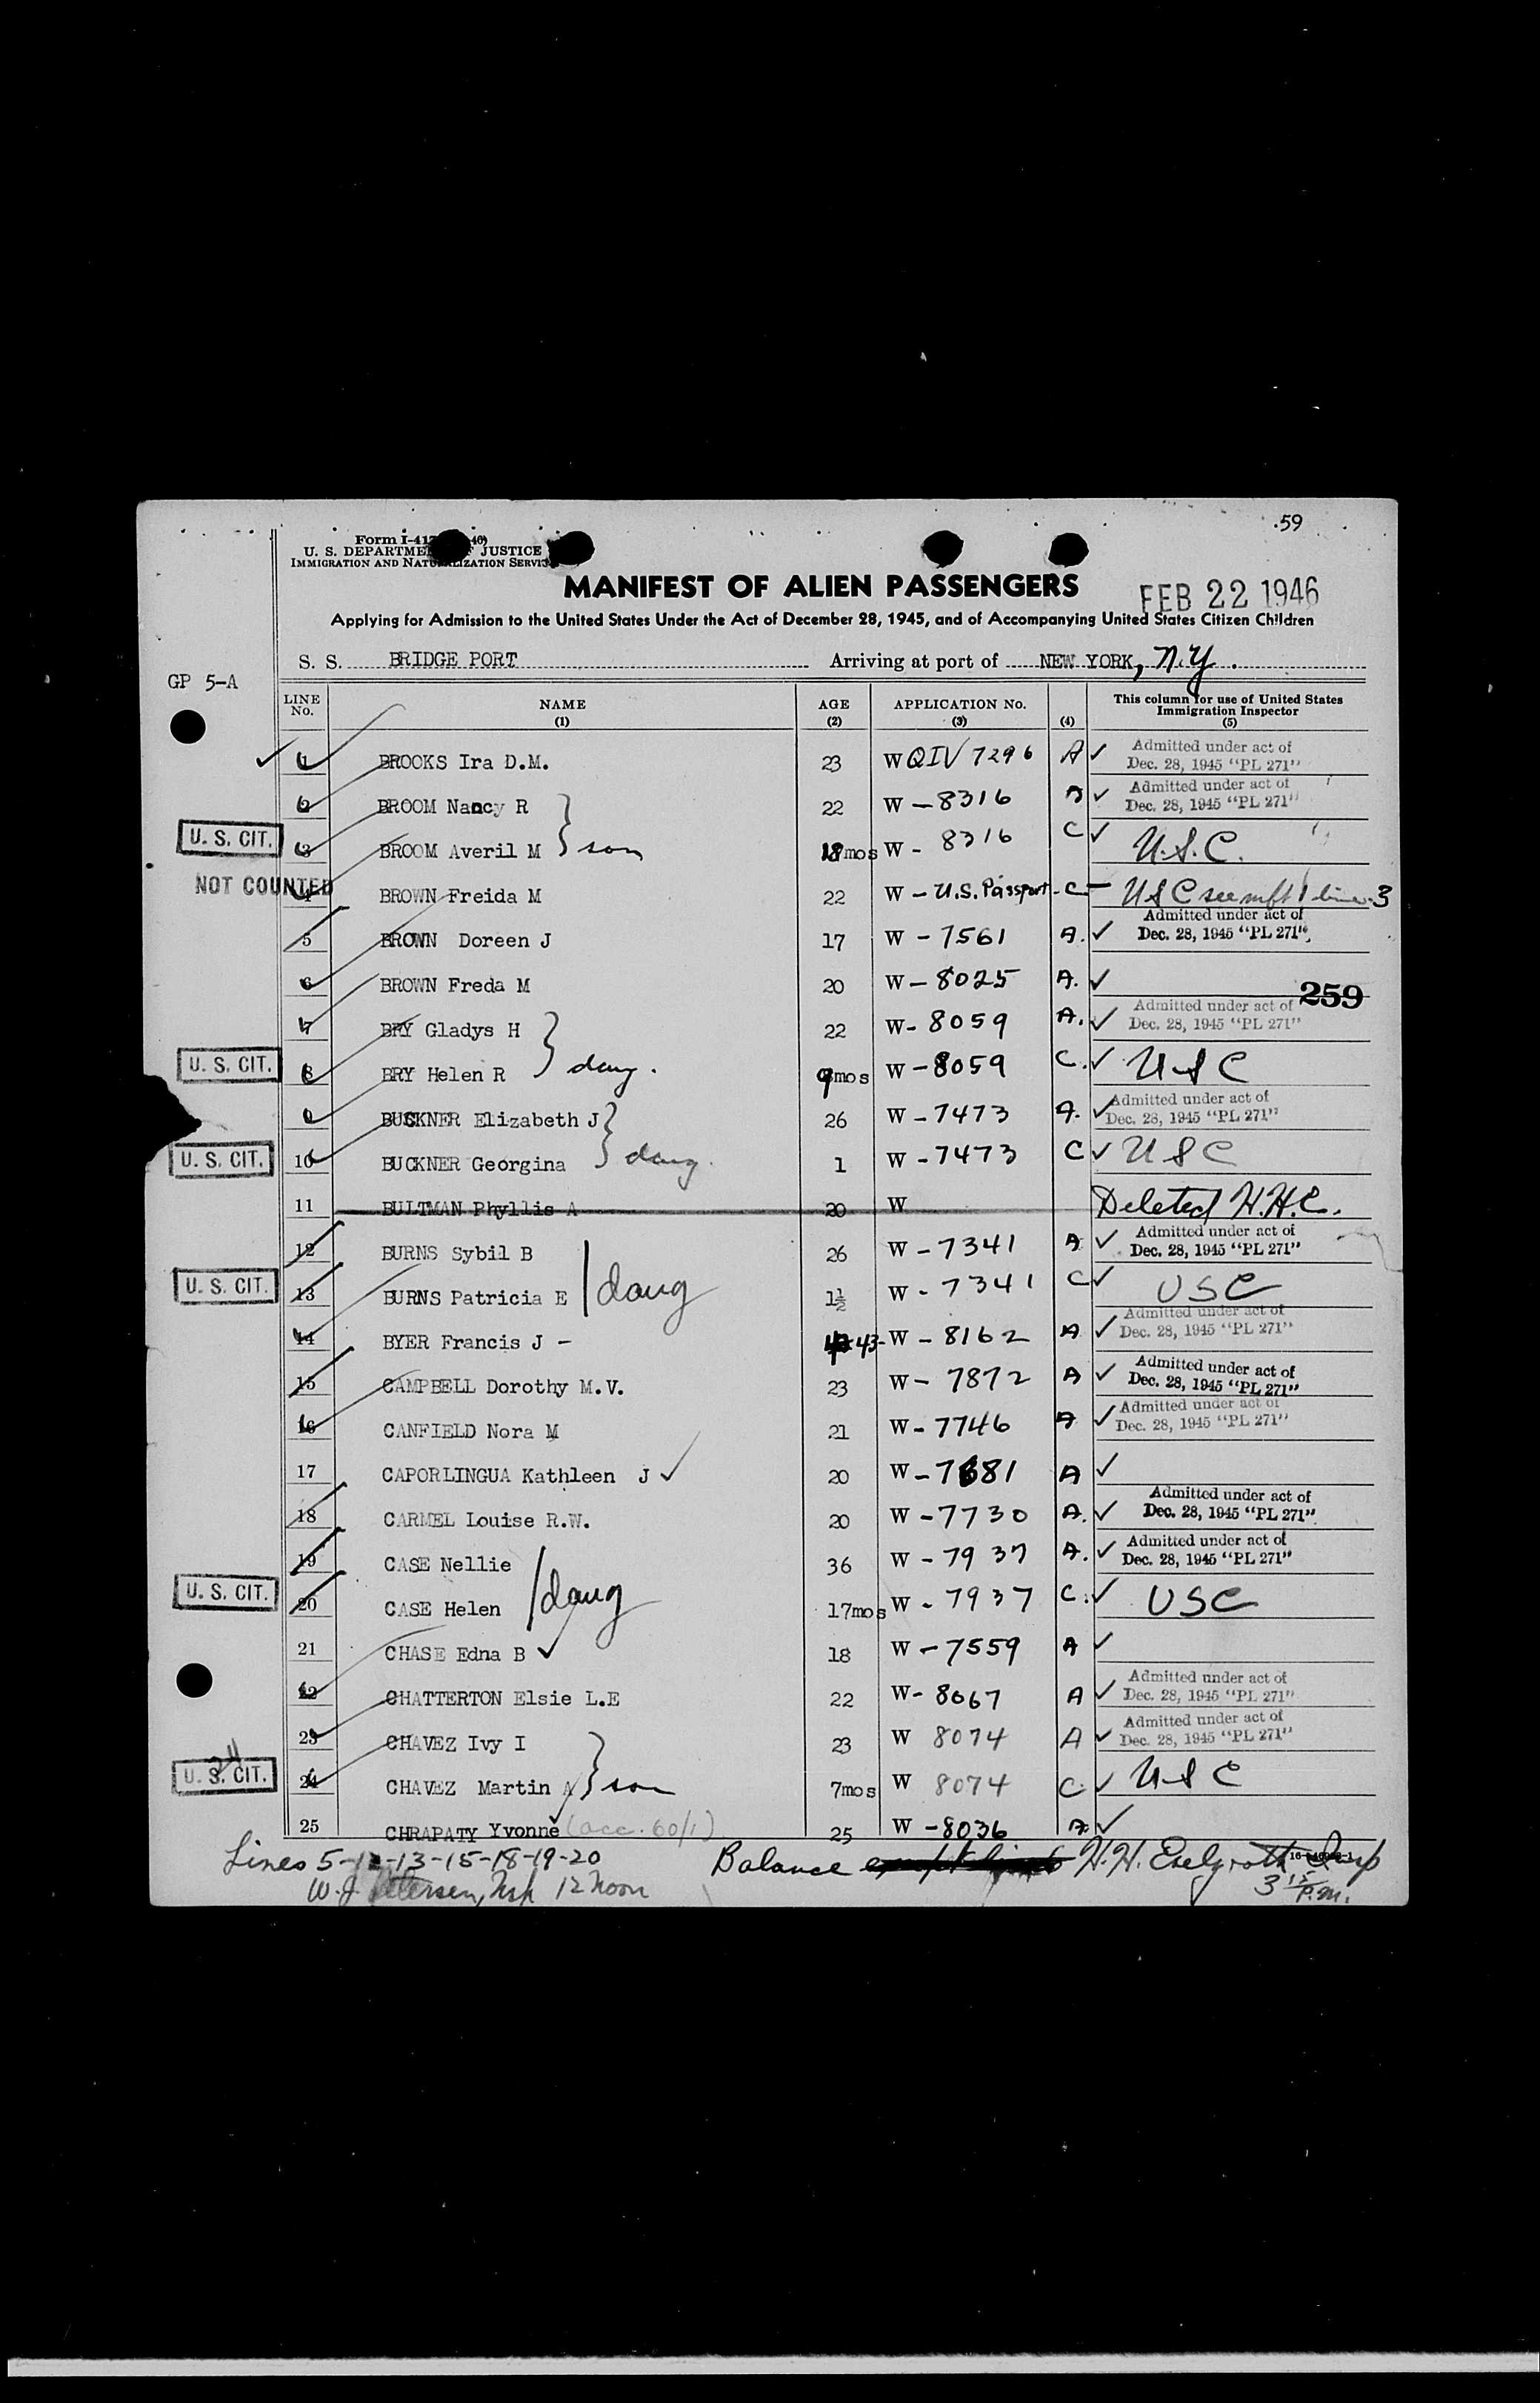 59
Form I-41
U. S. DEPARTMENT OF JUSTICE
IMMIGRATION AND NATURALIZATION SERVICE
MANIFEST OF ALIEN PASSENGERS
FEB 22 1946
Applying for Admission to the United States Under the Act of December 28, 1945, and of Accompanying United States Citizen Children
S. S. BRIDGE PORT Arriving at port of NEW YORK, N.Y.
GP 5-A
LINE No. NAME (1) AGE (2) APPLICATION No. (3) (4) This column for use of United States Immigration Inspector (5)
1 BROOKS Ira D.M. 23 W QIV 7296 A ✓ Admitted under act of Dec. 28, 1945 "PL 271"
2 BROOM Nancy R 22 W - 8316 A ✓ Admitted under act of Dec. 28, 1945 "PL 271"
U. S. CIT. 3 BROOM Averil M } son 18mos W - 8316 C ✓ U.S.C.
NOT COUNTED 4 BROWN Freida M 22 W - U.S. Passport - C - USC see mft 1 line 3
5 BROWN Doreen J 17 W - 7561 A. ✓ Admitted under act of Dec. 28, 1945 "PL 271"
6 BROWN Freda M 20 W - 8025 A. ✓ 259
7 BRY Gladys H 22 W - 8059 A. ✓ Admitted under act of Dec. 28, 1945 "PL 271"
U. S. CIT. 8 BRY Helen R } daug. 9mos W - 8059 C. ✓ USC
9 BUSKNER Elizabeth J 26 W - 7473 A. ✓ Admitted under act of Dec. 28, 1945 "PL 271"
U. S. CIT. 10 BUCKNER Georgina } daug. 1 W - 7473 C ✓ USC
11 BULTMAN Phyllis A 20 W Deleted H.H.E.
12 BURNS Sybil B 26 W - 7341 A ✓ Admitted under act of Dec. 28, 1945 "PL 271"
U. S. CIT. 13 BURNS Patricia E | daug 1½ W - 7341 C ✓ USC
14 BYER Francis J - 43 - W - 8162 A ✓ Admitted under act of Dec. 28, 1945 "PL 271"
15 CAMPBELL Dorothy M.V. 23 W - 7872 A ✓ Admitted under act of Dec. 28, 1945 "PL 271"
16 CANFIELD Nora M 21 W - 7746 A ✓ Admitted under act of Dec. 28, 1945 "PL 271"
17 CAPORLINGUA Kathleen J ✓ 20 W - 7681 A ✓
18 CARMEL Louise R.W. 20 W - 7730 A. ✓ Admitted under act of Dec. 28, 1945 "PL 271"
19 CASE Nellie 36 W - 7937 A. ✓ Admitted under act of Dec. 28, 1945 "PL 271"
U. S. CIT. 20 CASE Helen | daug 17mos W - 7937 C. ✓ USC
21 CHASE Edna B ✓ 18 W - 7559 A ✓
22 CHATTERTON Elsie L.E 22 W - 8067 A ✓ Admitted under act of Dec. 28, 1945 "PL 271"
23 CHAVEZ Ivy I 23 W 8074 A ✓ Admitted under act of Dec. 28, 1945 "PL 271"
24
U. S. CIT. 24 CHAVEZ Martin A } son 7mos W 8074 C. ✓ USC
25 CHRAPATY Yvonne (acc. 60/1) 25 W - 8036 A. ✓
Lines 5-12-13-15-18-19-20 Balance H.H. Insp
W.J. Petersen, Insp 12 Noon 3 15 P.m.